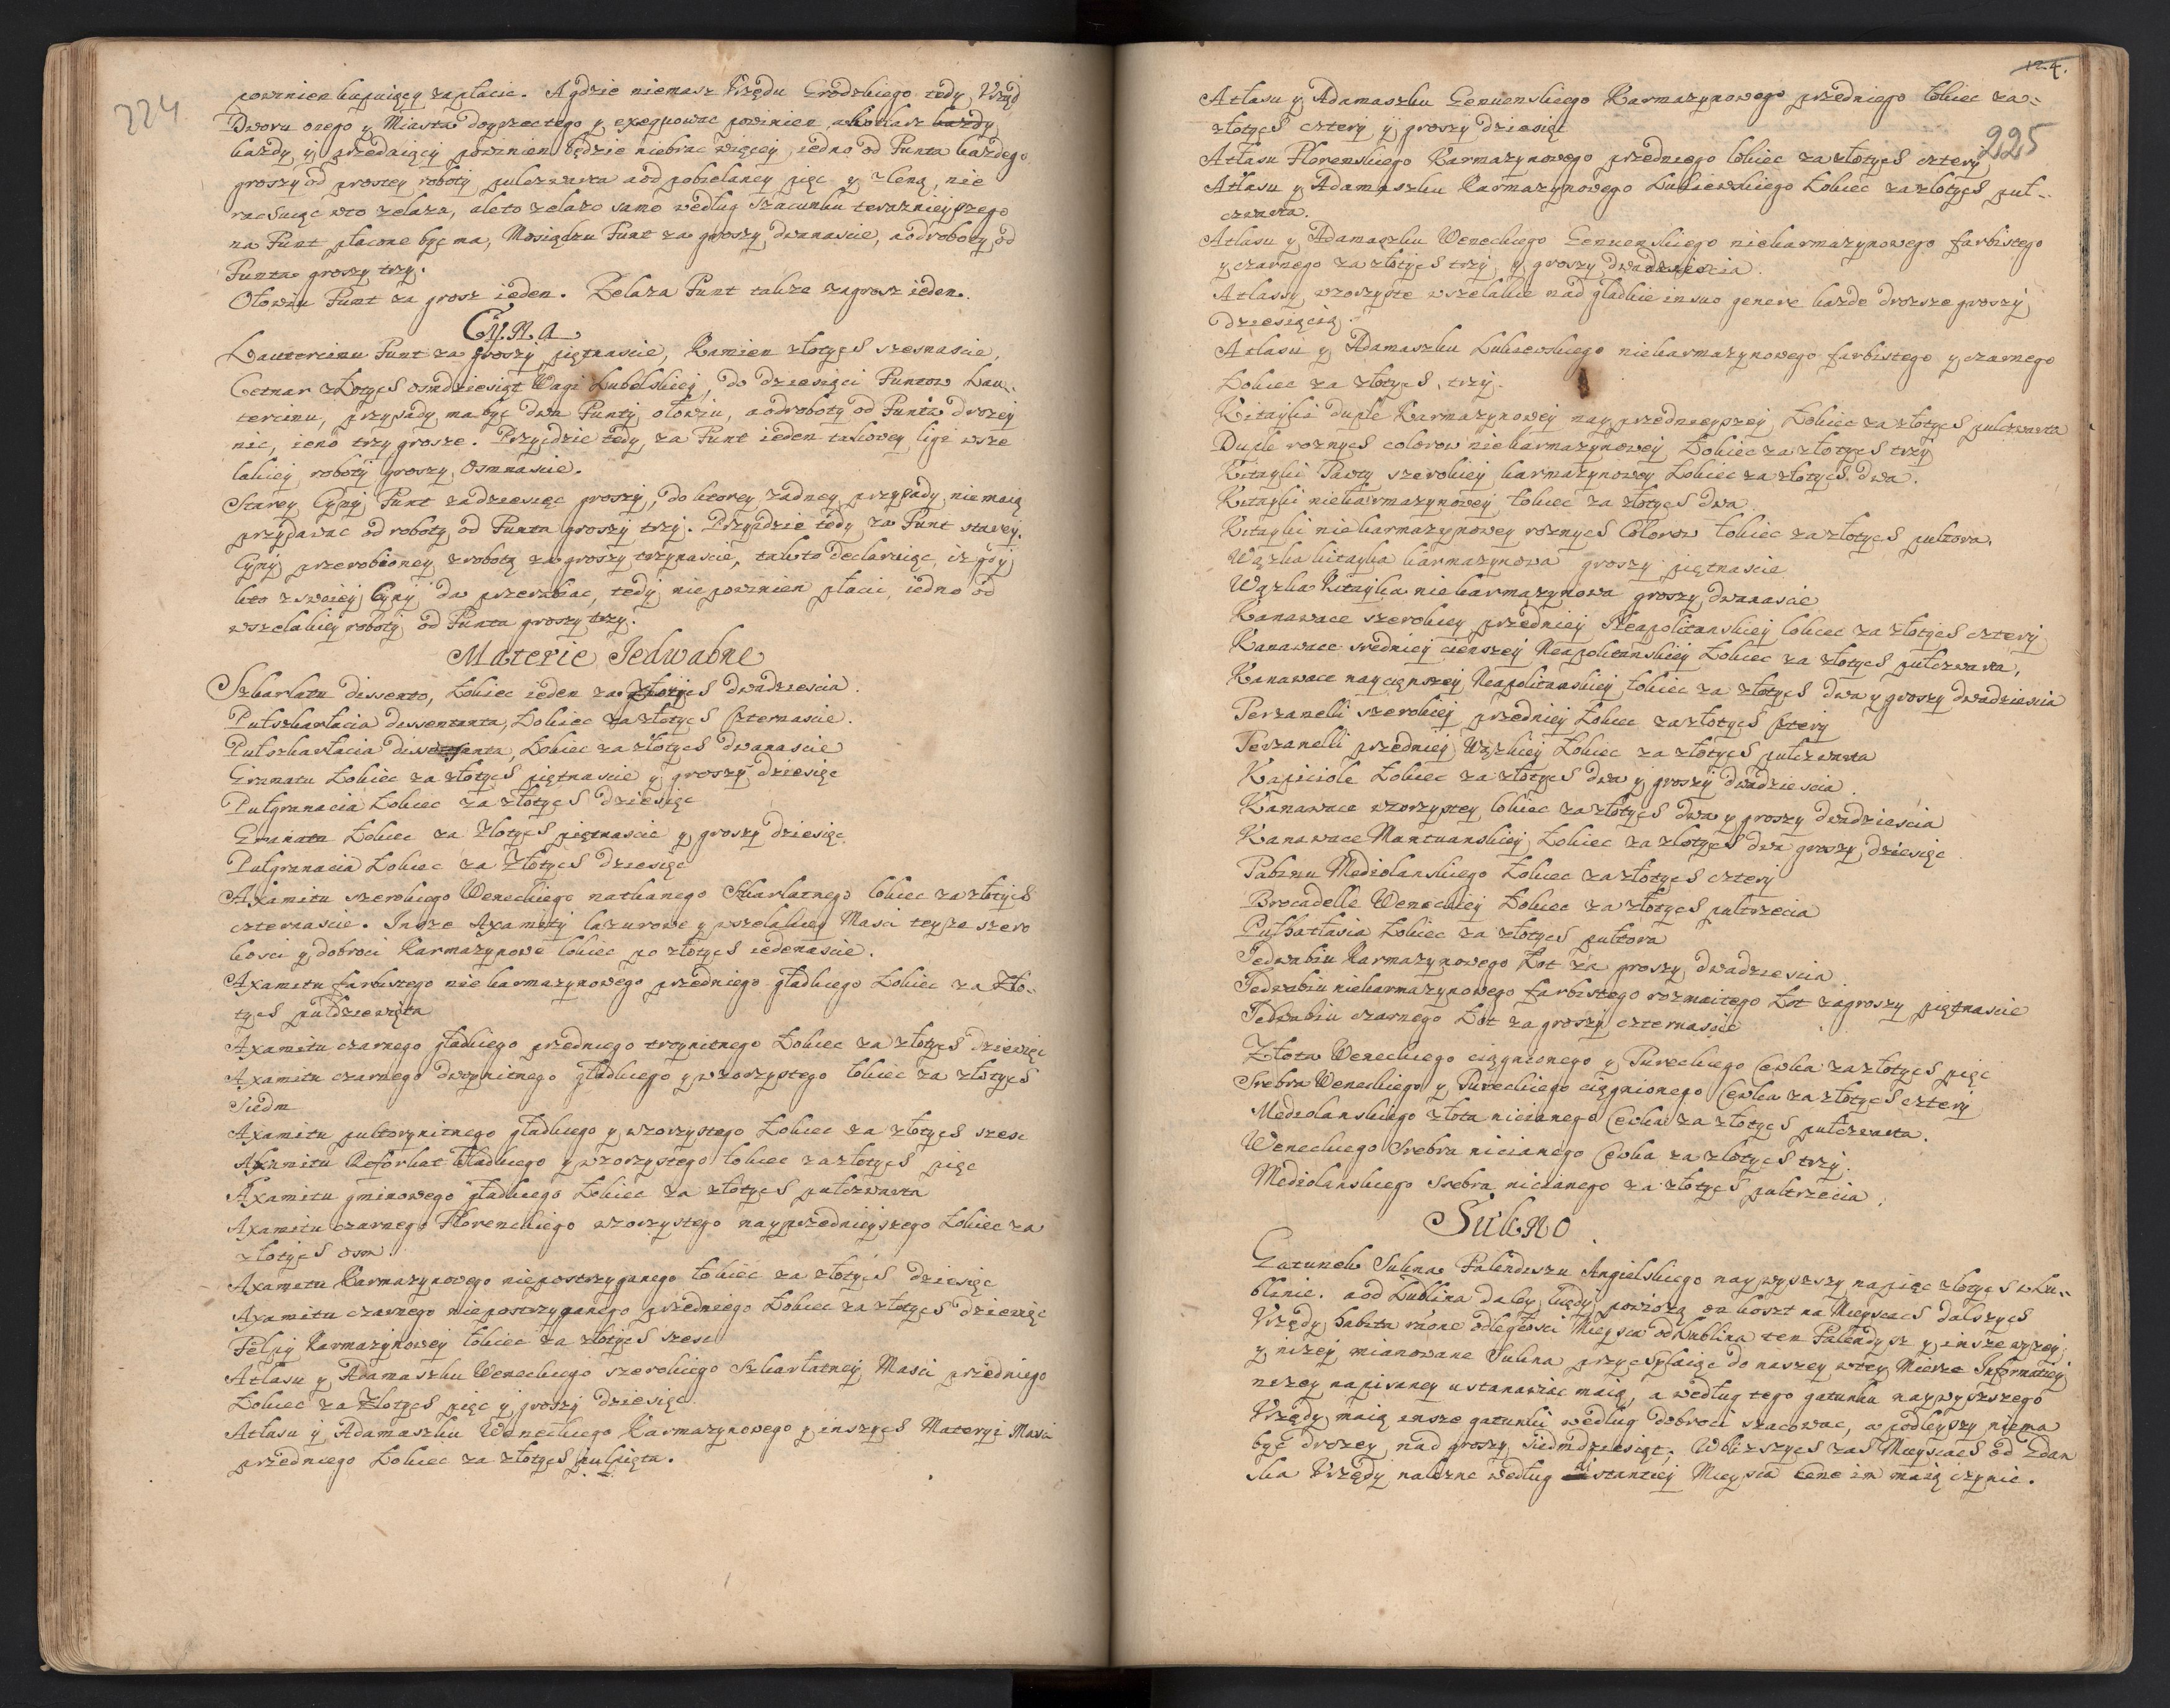 224
powinien kupuiący zapłacic. A gdzie niemasz Vrzędu Grodzkiego tedy Vrząd
Dworu onego y Miasta dopprzec tego y exequowac powinien, a kotlarz kazdy
kazdy y przedaiący powinien będzie niebrac więcey, iedno od Funta kazdego
groszy od prostey roboty pulczwarta a od pobielaney pięc y z Cyną, nie
rachuiąc wto zelaza, ale to zelazo samo według Szacunku teraznieyszego
na Funt płacone byc ma, Mosiądzu Funt za groszy dwanascie, a od roboty od
Funta groszy trzy.
Ołowiu Funt za grosz ieden. Zelaza Funt takze zagrosz ieden.
Cyna
Lautercinu Funt za groszy piętnascie, Kamien złotych szesnascie,
Cetnar złotych osmdziesiąt Wagi Lubelskiey, do dziesięci Funtow Lau-
tercinu, przysady ma byc dwa Funty ołowiu, a od roboty od Funta drozey
nic, ieno trzy grosze. Przyidzie tedy za Funt ieden takowey ligi wsze
lakiey roboty groszy osmnascie.
Starey Cyny Funt zadziesięc groszy, do ktorey zadney przysady nie maią
przydawac od roboty od Funta groszy trzy. Przyidzie tedy za Funt starey
Cyny przerobioney zrobotą za groszy trzynascie, tak to declaruiąc, iz gdy
kto z swoiey Cyny da przerabiac, tedy nie powinien płacic, iedno od
wszelakiey roboty od Funta groszy trzy.
Materie Jedwabne
Szkarłatu dissento, Łokiec ieden za złotych dwadziescia.
Pułszkarłacia dissentanta, Łokiec za złotych czternascie.
Pułszkarłacia Łokiec za złotych dwanascie
Granatu Łokiec za złotych piętnascie y groszy dziesięc
Pułgranacia Łokiec za złotych dziesięc
Granatu Łokiec za złotych piętnascie y groszy dziesięc
Pułgranacia Łokiec za złotych dziesięc
Axamitu szerokiego Weneckiego natkanego Szkarłatnego łokiec za złotych
czternascie. Insze Axamity lazurowe y wszelakiey Masci teyza szero
kosci y dobroci Karmazynowe łokiec po złotych iedenascie.
Axamitu farbistego nie karmazynowego przedniego gładkiego Łokiec za Zło-
tych pułdziewięta
Axamitu czarnego gładkiego przedniego troynitnego Łokiec za złotych dziewięc
Axamitu czarnego dwoynitnego gładkiego y wzorzystego łokiec za złotych
Siedm
Axamitu pułtorynitnego gładkiego y wzorzystego Łokiec za złotych szesc
Axamitu Reforkat Gładkiego y wzorzystego łokiec za złotych pięc
Axamitu gminowego gładkiego Łokiec za złotych pułczwarta
Axamitu czarnego Florenckiego wzorzystego nayprzednieyszego Łokiec za
złotych osm.
Axamitu Karmazynowego niepostrzyganego łokiec za złotych dziesięc
Axamitu czarnego niepostrzyganego przedniego Łokiec za złotych dziewięc
Felpy Karmazynowey łokiec za złotych szesc
Atłasu y Adamaszku Weneckiego szerokiego Szkarłatney Masci przedniego
Łokiec za złotych pięc y groszy dziesięc
Atłasu y Adamaszku Weneckiego Karmazynowego y inszych Materyi Masci
przedniego Łokiec za złotych pułpięta.
124.
225
Atłasu y Adamaszku Genuenskiego Karmazynowego przedniego łokiec za-
złotych cztery y groszy dziesięc
Atłasu Florenskiego Karmazynowego przedniego łokiec za złotych cztery
Atłasu y Adamaszku Karmazynowego Lukiewskiego Łokiec za złotych puł-
czwarta.
Atłasu y Adamaszku Weneckiego Genuenskiego niekarmazynowego farbistego
y czarnego za złotych trzy y groszy dwadziescia
Atłassy wzorzyste wszelakie nad gładkie in suo genere kazde drozsze groszy
dziesiącią.
Atłasu y Adamaszku Lukiewskiego niekarmazynowego farbistego y czarnego
Łokiec za złotych trzy.
Kitayki duple Karmazynowey nayprzednieyszey Łokiec za złotych pułczwarta
Duple roznych colorow niekarmazynowey Łokiec za złotych trzy
Kitayki Pawty szerokiey karmazynowey Łokiec za złotych dwa.
Kitayki niekarmazynowey łokiec za złotych dwa
Kitayki niekarmazynowey roznych Colorow łokiec za złotych pułtora.
Wązka kitayka karmazynowa groszy piętnascie
Wązka Kitayka niekarmazynowa groszy dwanascie
Kanawace szerokiey przedniey Neapolitanskiey łokiec za złotych cztery
Kanawace sredniey cienszey Neapolitanskiey Łokiec za złotych pułczwarta,
Kanawace naycienszey Neapolitanskiey łokiec za złotych dwa y groszy dwadziescia
Terzanelli szerokiey przedniey Łokiec za złotych cztery
Terzanelli przedniey Wązkiey Łokiec za złotych pułczwarta
Kapiciole Łokiec za złotych dwa y groszy dwadziescia.
Kanawace wzorzystey łokiec za złotych dwa y groszy dwadziescia
Kanawace Mantuanskiey Łokiec za złotych dwa groszy dziesięc
Tabinu Mediolanskiego Łokiec za złotych cztery
Brocadelle Weneckiey Łokiec za złotych pułtrzecia
Pułhatłasia Łokiec za złotych pułtora
Jedwabiu Karmazynowego Łot za groszy dwadziescia
Jedwabiu niekarmazynowego farbistego rozmaitego Łot zagroszy piętnascie
Jedwabiu czarnego Łot za groszy czternascie
Złota Weneckiego ciągnionego y Tureckiego Cewka za złotych pięc
Srebra Weneckiego y Tureckiego ciągnionego Cewka za złotych cztery
Mediolanskiego złota nicianego Cewka za złotych pułczwarta.
Weneckiego Srebra nicianego Cewka za złotych trzy.
Mediolanskiego Srebra nicianego za złotych pułtrzecia.
Sukno
Gatunek Sukna Falendyszu Angielskiego naywyszszy napięc złotych w Lu-
blinie. a od Lublina daley kiedy powiozą za koszt na Mieyscach dalszych
Vrzędy habita ratione odległosci Mieysca od Lublina ten Falendysz y insze wyzey
y nizey mianowane Sukna przychylaiąc do naszey wtey Mierze Informatiey
nizey napisaney ustanawiac maią, a według tego gatunku naywyszszego
Vrzędy maią insze gatunki według dobroci szacowac, a podleyszy niema
byc drozey nad groszy siedmdziesiąt, Wblizszych zas Mieyscach od Gdan
ska Vrzędy nalezne według distantiey Mieysca Cene im maią czynic.